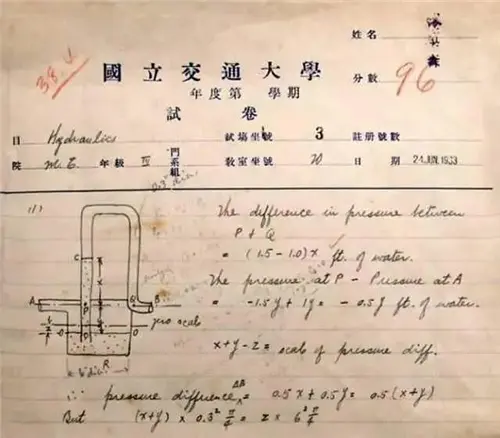 姓名
38.4
國立交通大學
分數 96
年度第 學期
試卷
目 Hydraulics 試場坐號 3 註册號數
院 M.E. 年級 IV 門系組 教室坐號 70 日期 24 JUN 1933
0.3" dia.
(1)
The difference in pressure between
P + Q
= (1.5 - 1.0) x ft. of water.
The pressure at P - Pressure at A
= -1.5 y + 1y = -0.5 y ft. of water.
x + y - z = scale of pressure diff.
C
x
A
P
Q
B
y
zero scale
O
O
R
6" dia.
∴ pressure difference AB = 0.5 x + 0.5 y = 0.5 (x+y)
But (x+y) x 0.3² π/4 = z x 6² π/4